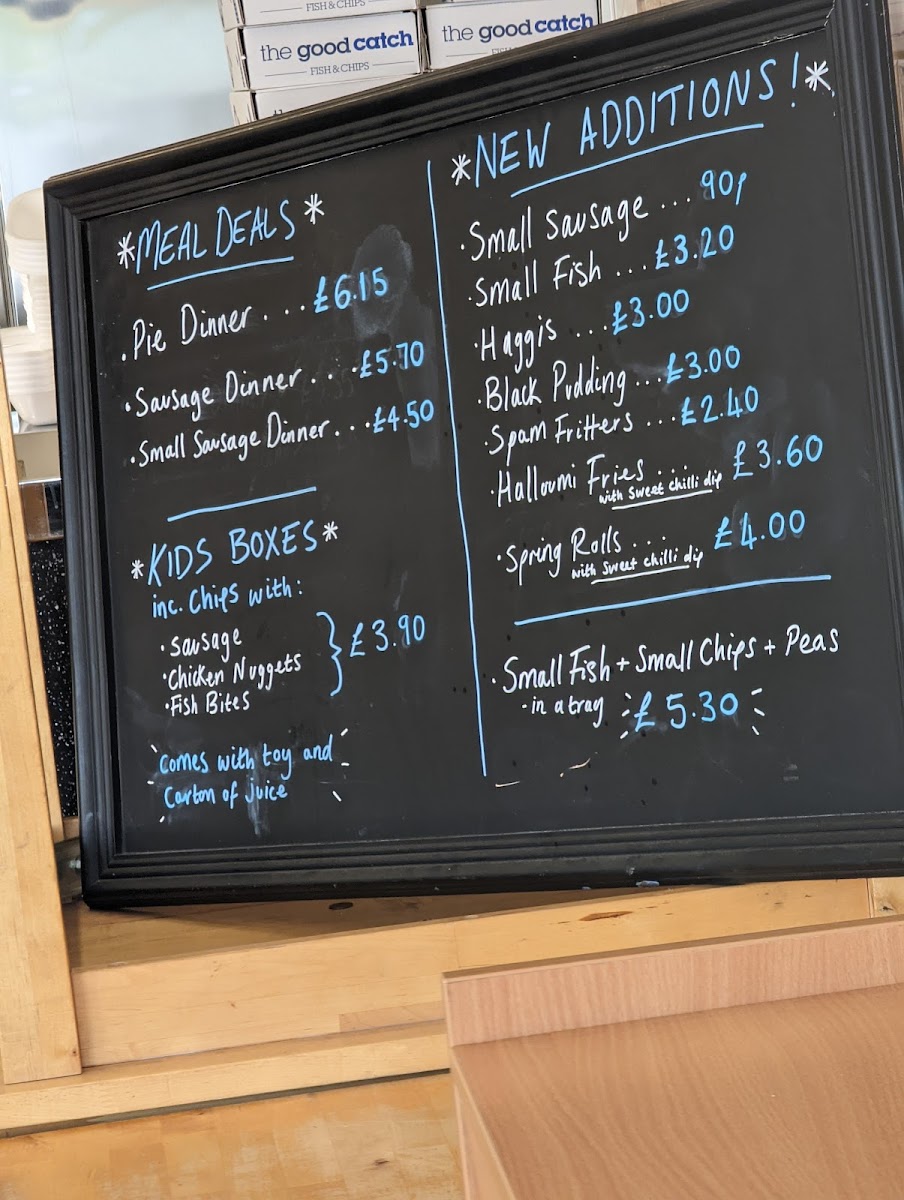 FISH & CHIPS
the good catch
FISH & CHIPS
the good catch
the
*MEAL DEALS*
• Pie Dinner .... £6.15
• Sausage Dinner .... £5.70
• Small Sausage Dinner ... £4.50
*KIDS BOXES*
inc. Chips with:
• Sausage
• Chicken Nuggets
• Fish Bites
} £3.90
Comes with toy and
Carton of juice
*NEW ADDITIONS!*
• Small Sausage ... 90p
• Small Fish ... £3.20
• Haggis ... £3.00
• Black Pudding ... £3.00
• Spam Fritters ... £2.40
• Halloumi Fries .... £3.60
with sweet chilli dip
• Spring Rolls ... £4.00
with sweet chilli dip
• Small Fish + Small Chips + Peas
- in a tray £5.30